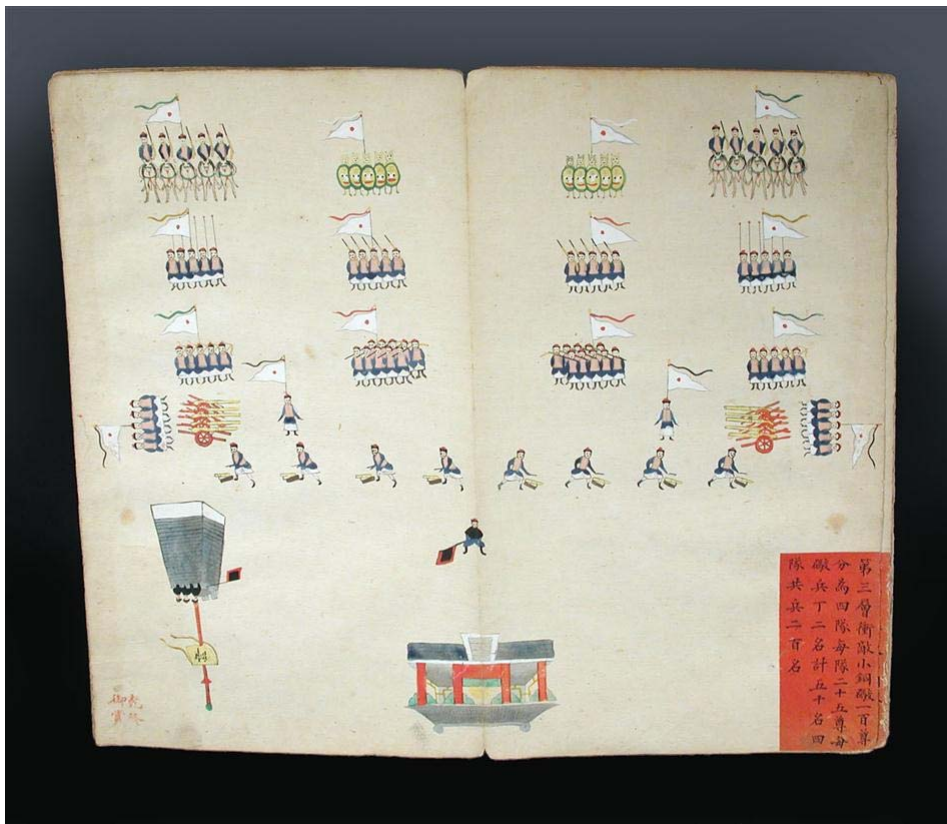 第三層衝敵小銅礟一百尊
分為四隊每隊二十五尊每
礟兵丁二名計五十名四
隊共兵二百名
乾隆
御